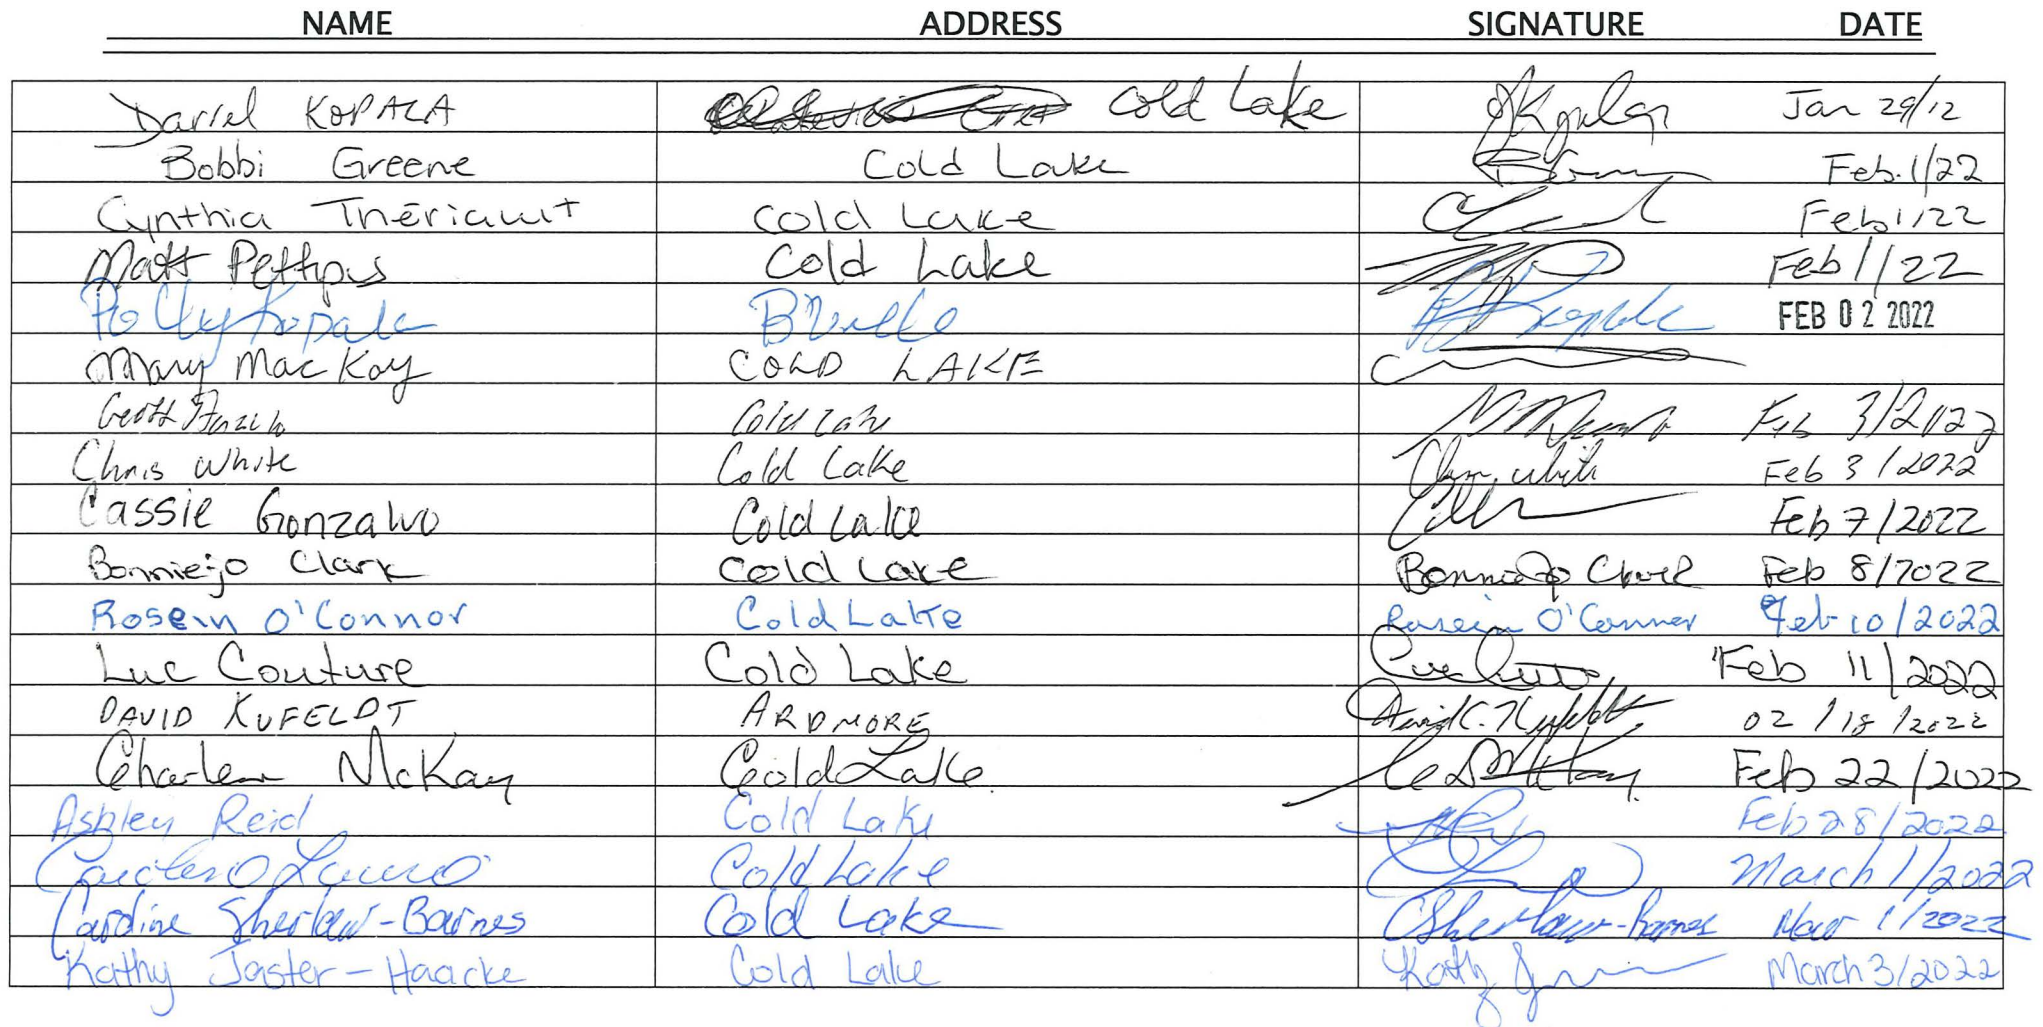 NAME ADDRESS SIGNATURE DATE
Darrel KOPALA Cold Lake Jan 29/12
Bobbi Greene Cold Lake Feb. 1/22
Cynthia Thériault Cold Lake Feb 1/22
Matt Pettipas Cold Lake Feb 1/22
Polly Kopala B'ville FEB 02 2022
Mary MacKay COLD LAKE
Geoff Cold Lake Feb 3/2022
Chris White Cold Lake Chris White Feb 3/2022
Cassie Gonzalvo Cold Lake Feb 7/2022
Bonniejo Clark Cold Lake Bonniejo Clark Feb 8/2022
Rosein O'Connor Cold Lake Rosein O'Connor Feb 10/2022
Luc Couture Cold Lake Feb 11/2022
DAVID KUFELDT ARDMORE David C. Kufeldt 02/18/2022
Charlene McKay Cold Lake Feb 22/2022
Ashley Reid Cold Lake Feb 28/2022
Cold Lake March 1/2022
Caroline Sherlaw-Barnes Cold Lake CSherlaw-Barnes Mar 1/2022
Kathy Jaster-Haacke Cold Lake Kathy March 3/2022